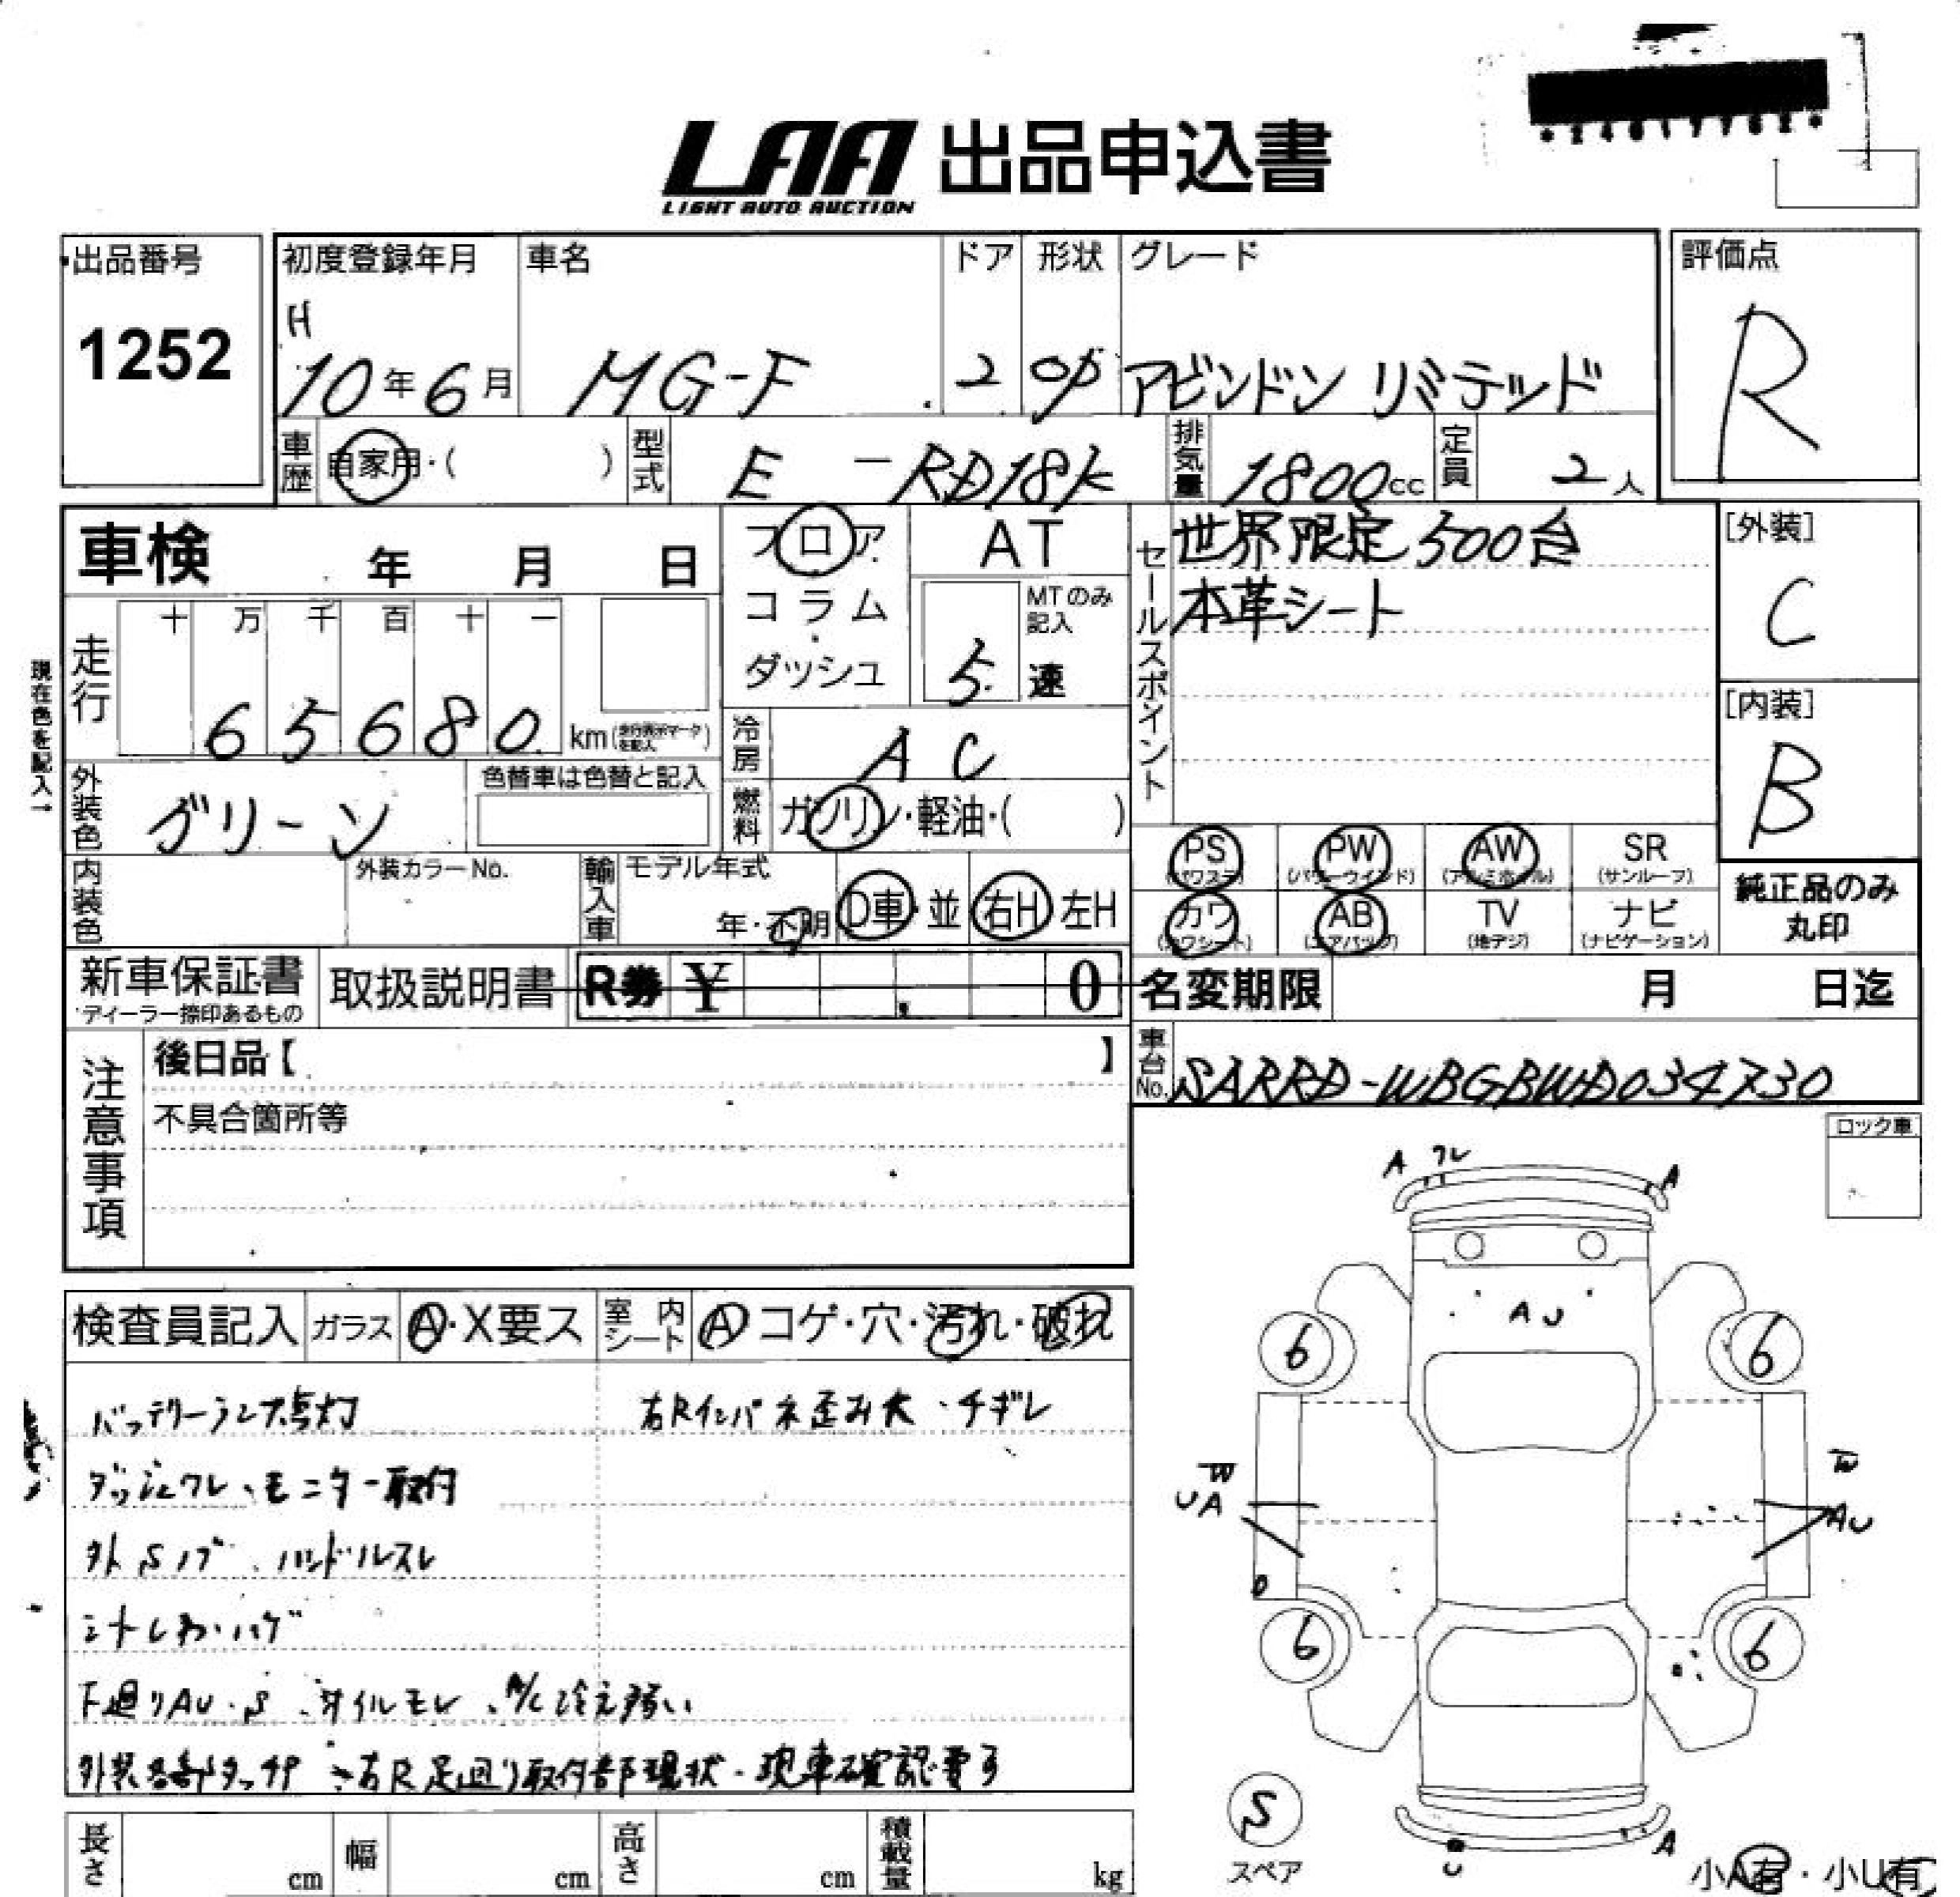 LAA 出品申込書
LIGHT AUTO AUCTION
出品番号 初度登録年月 車名 ドア 形状 グレード 評価点
1252 H 10年6月 MG-F 2 OP アビンドン リミテッド R
車歴 自家用・( ) 型式 E-RD18K 排気量 1800cc 定員 2人
車検 年 月 日 フロア AT セールスポイント 世界限定500台 [外装]
コラム MTのみ記入 本革シート C
ダッシュ 5速
現在色を記入→
走行 十 万 千 百 十 一
65680 km
冷房 AC [内装]
外装色 グリーン 色替車は色替と記入 燃料 ガソリン・軽油・( ) B
PS (パワステ) PW (パワーウインド) AW (アルミホイル) SR (サンルーフ)
内装色 外装カラーNo. 輸入車 モデル年式 年・不明 D車・並 右H 左H
カワ (カワシート) AB (エアバッグ) TV (地デジ) ナビ (ナビゲーション) 純正品のみ丸印
新車保証書 取扱説明書 R券 ¥ 0 名変期限 月 日迄
ディーラー捺印あるもの
注意事項 後日品【 】 車台No. SARRD-WBGBWD034730
不具合箇所等
ロック車
A ワレ A
検査員記入 ガラス A・X要ス 室内シート A コゲ・穴・汚れ・破れ
AU
6 6
バッテリーランプ点灯 右Rインパネ歪み大・チギレ
ダッシュワレ、モニター取付
W W
UA AU
外Sノブ、ハンドルスレ
シートしわ・ハゲ
6 6
下廻りAU・S、オイルモレ、A/C冷え弱い
外装各部タッチP 右R足廻り取付部現状・現車確認要す
S
スペア
U A
小A有・小U有
長さ cm 幅 cm 高さ cm 積載量 kg